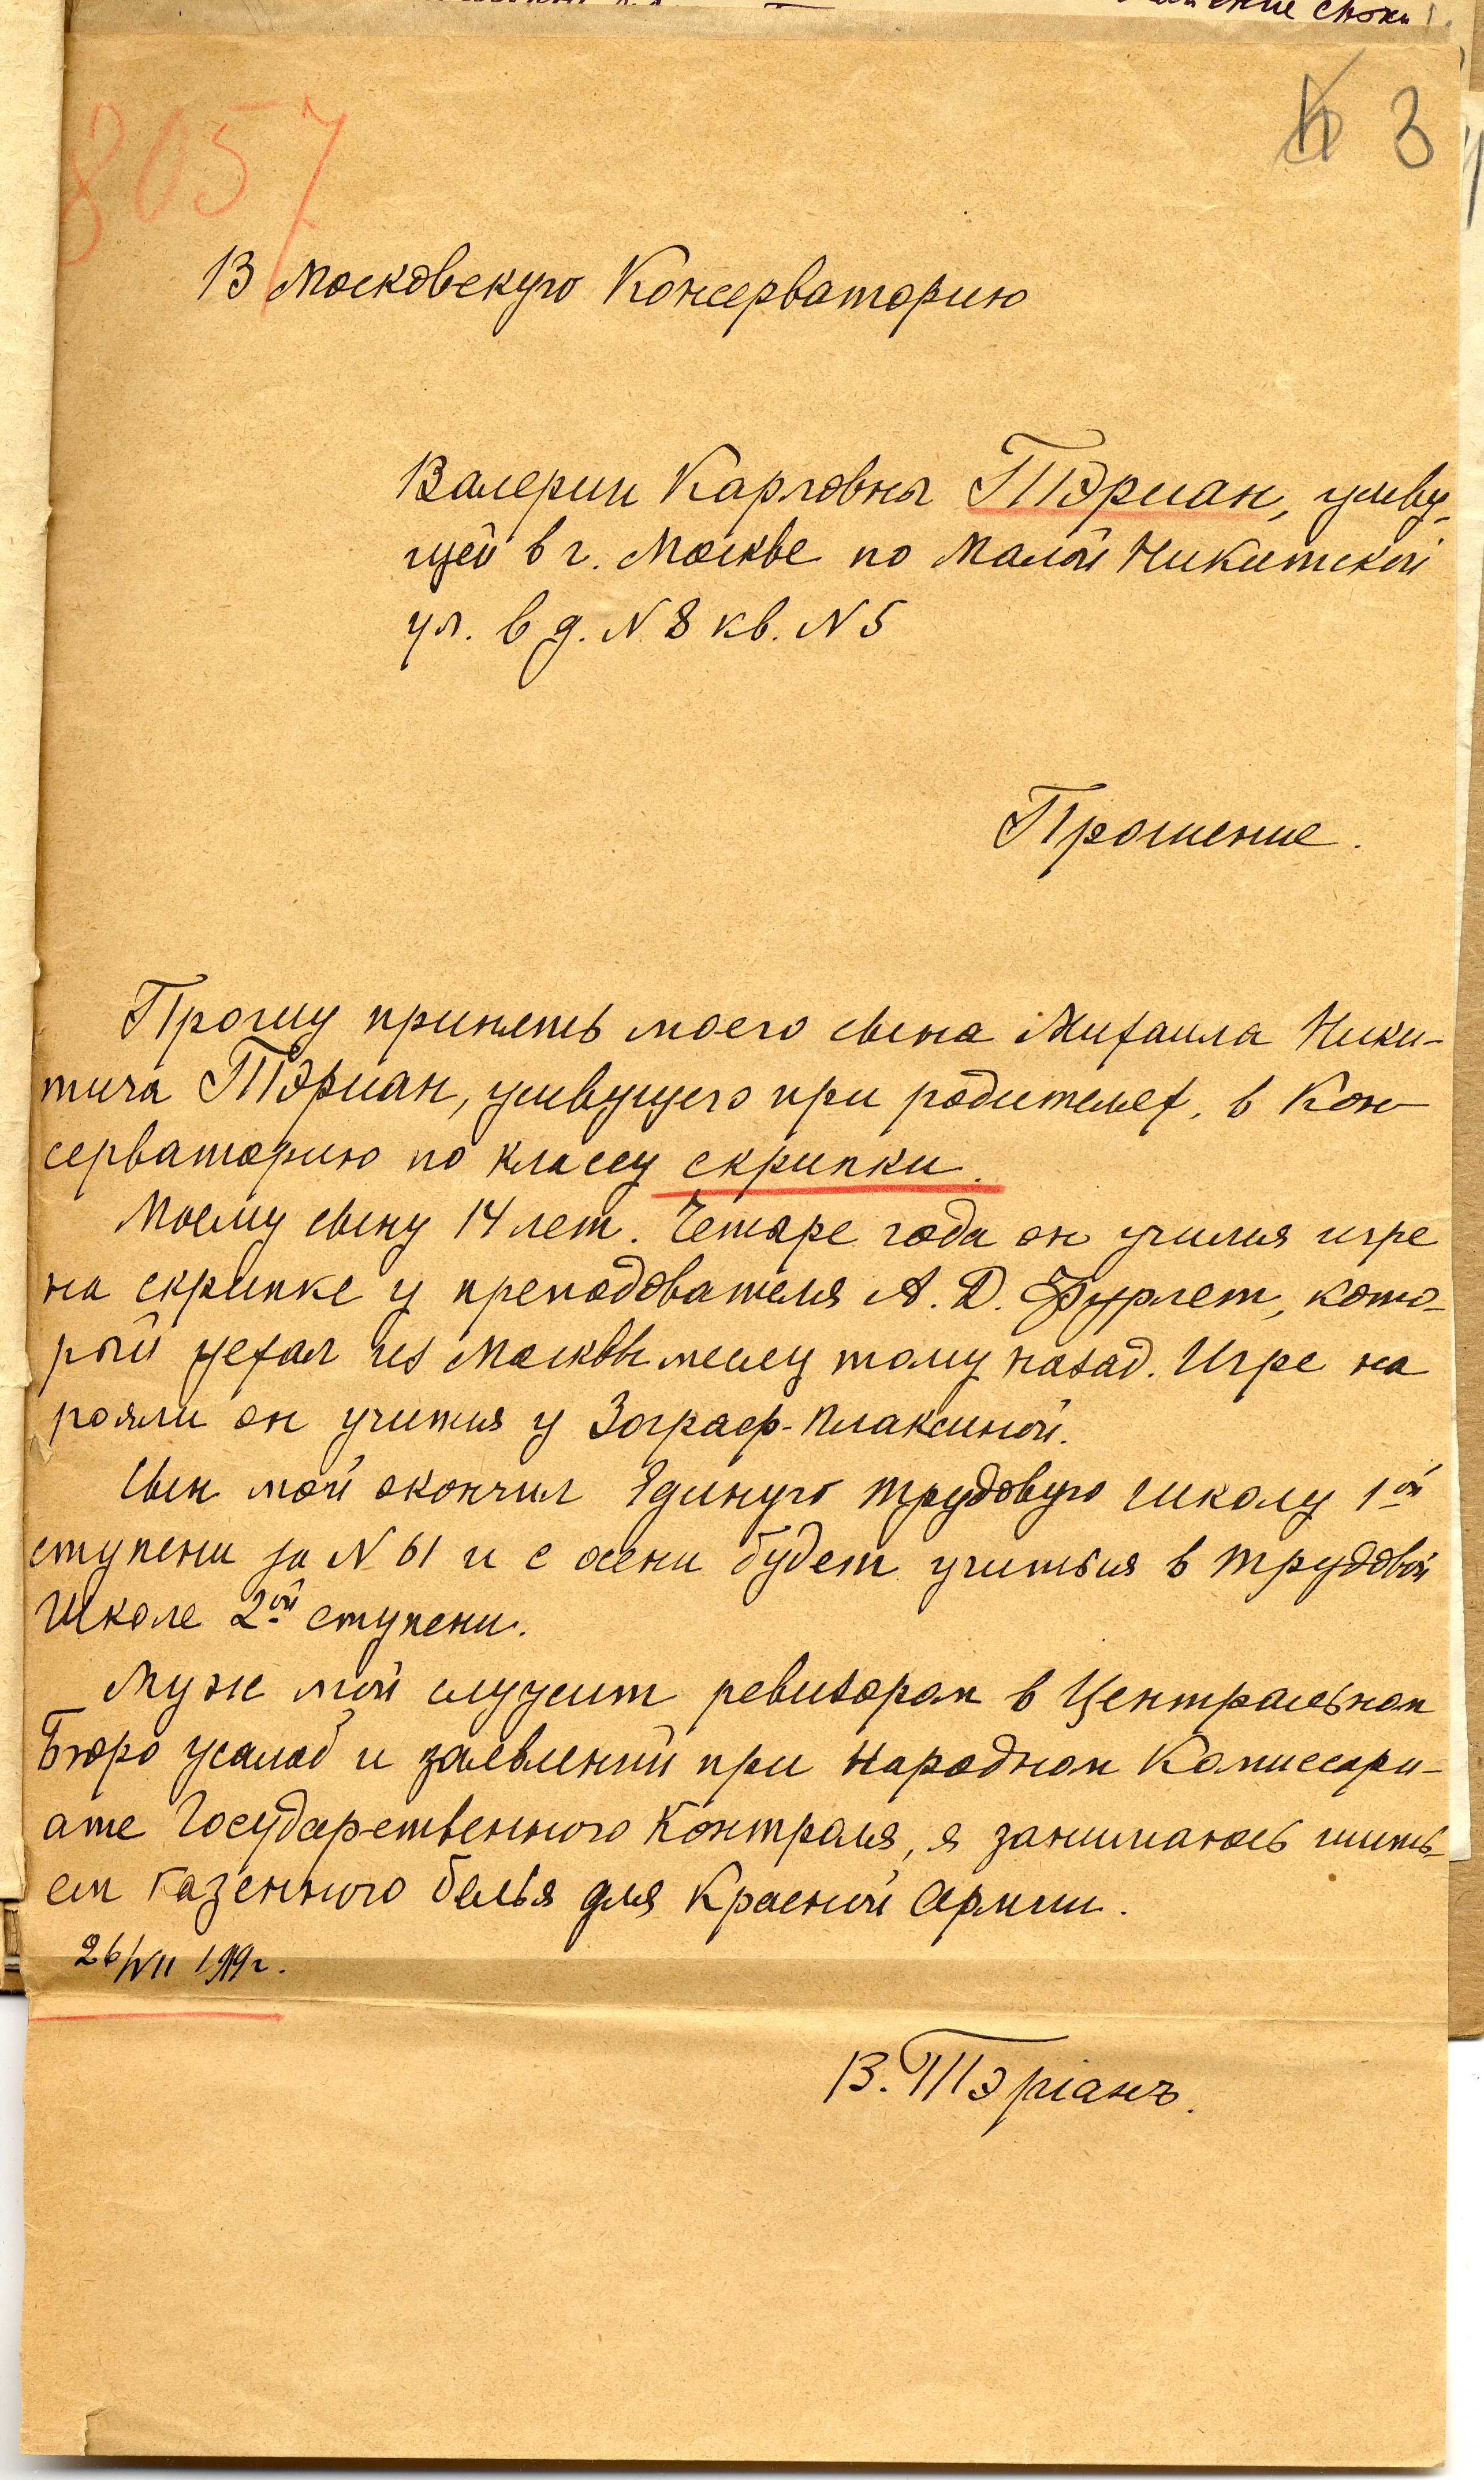 8057
3
В Московскую Консерваторию
Валерии Карловны Тэриан, живу-
щей в г. Москве по Малой Никитской
ул. в д. N 8 кв. N 5
Прошение.
Прошу принять моего сына Михаила Ники-
тича Тэриан, живущего при родителях, в Кон-
серваторию по классу скрипки.
Моему сыну 14 лет. Четыре года он учился игре
на скрипке у преподавателя А. Д. Фурлет, кото-
рый уехал из Москвы месяц тому назад. Игре на
рояли он учится у Зограф-Плаксиной.
Сын мой окончил Единую трудовую школу 1ой
ступени за N 61 и с осени будет учиться в трудовой
школе 2ой ступени.
Муж мой служит ревизором в Центральном
Бюро жалоб и заявлений при Народном Комиссари-
ате Государственного Контроля, я занимаюсь шить-
ем казенного белья для Красной Армии.
26/VII 1919г.
В. Тэріанъ.